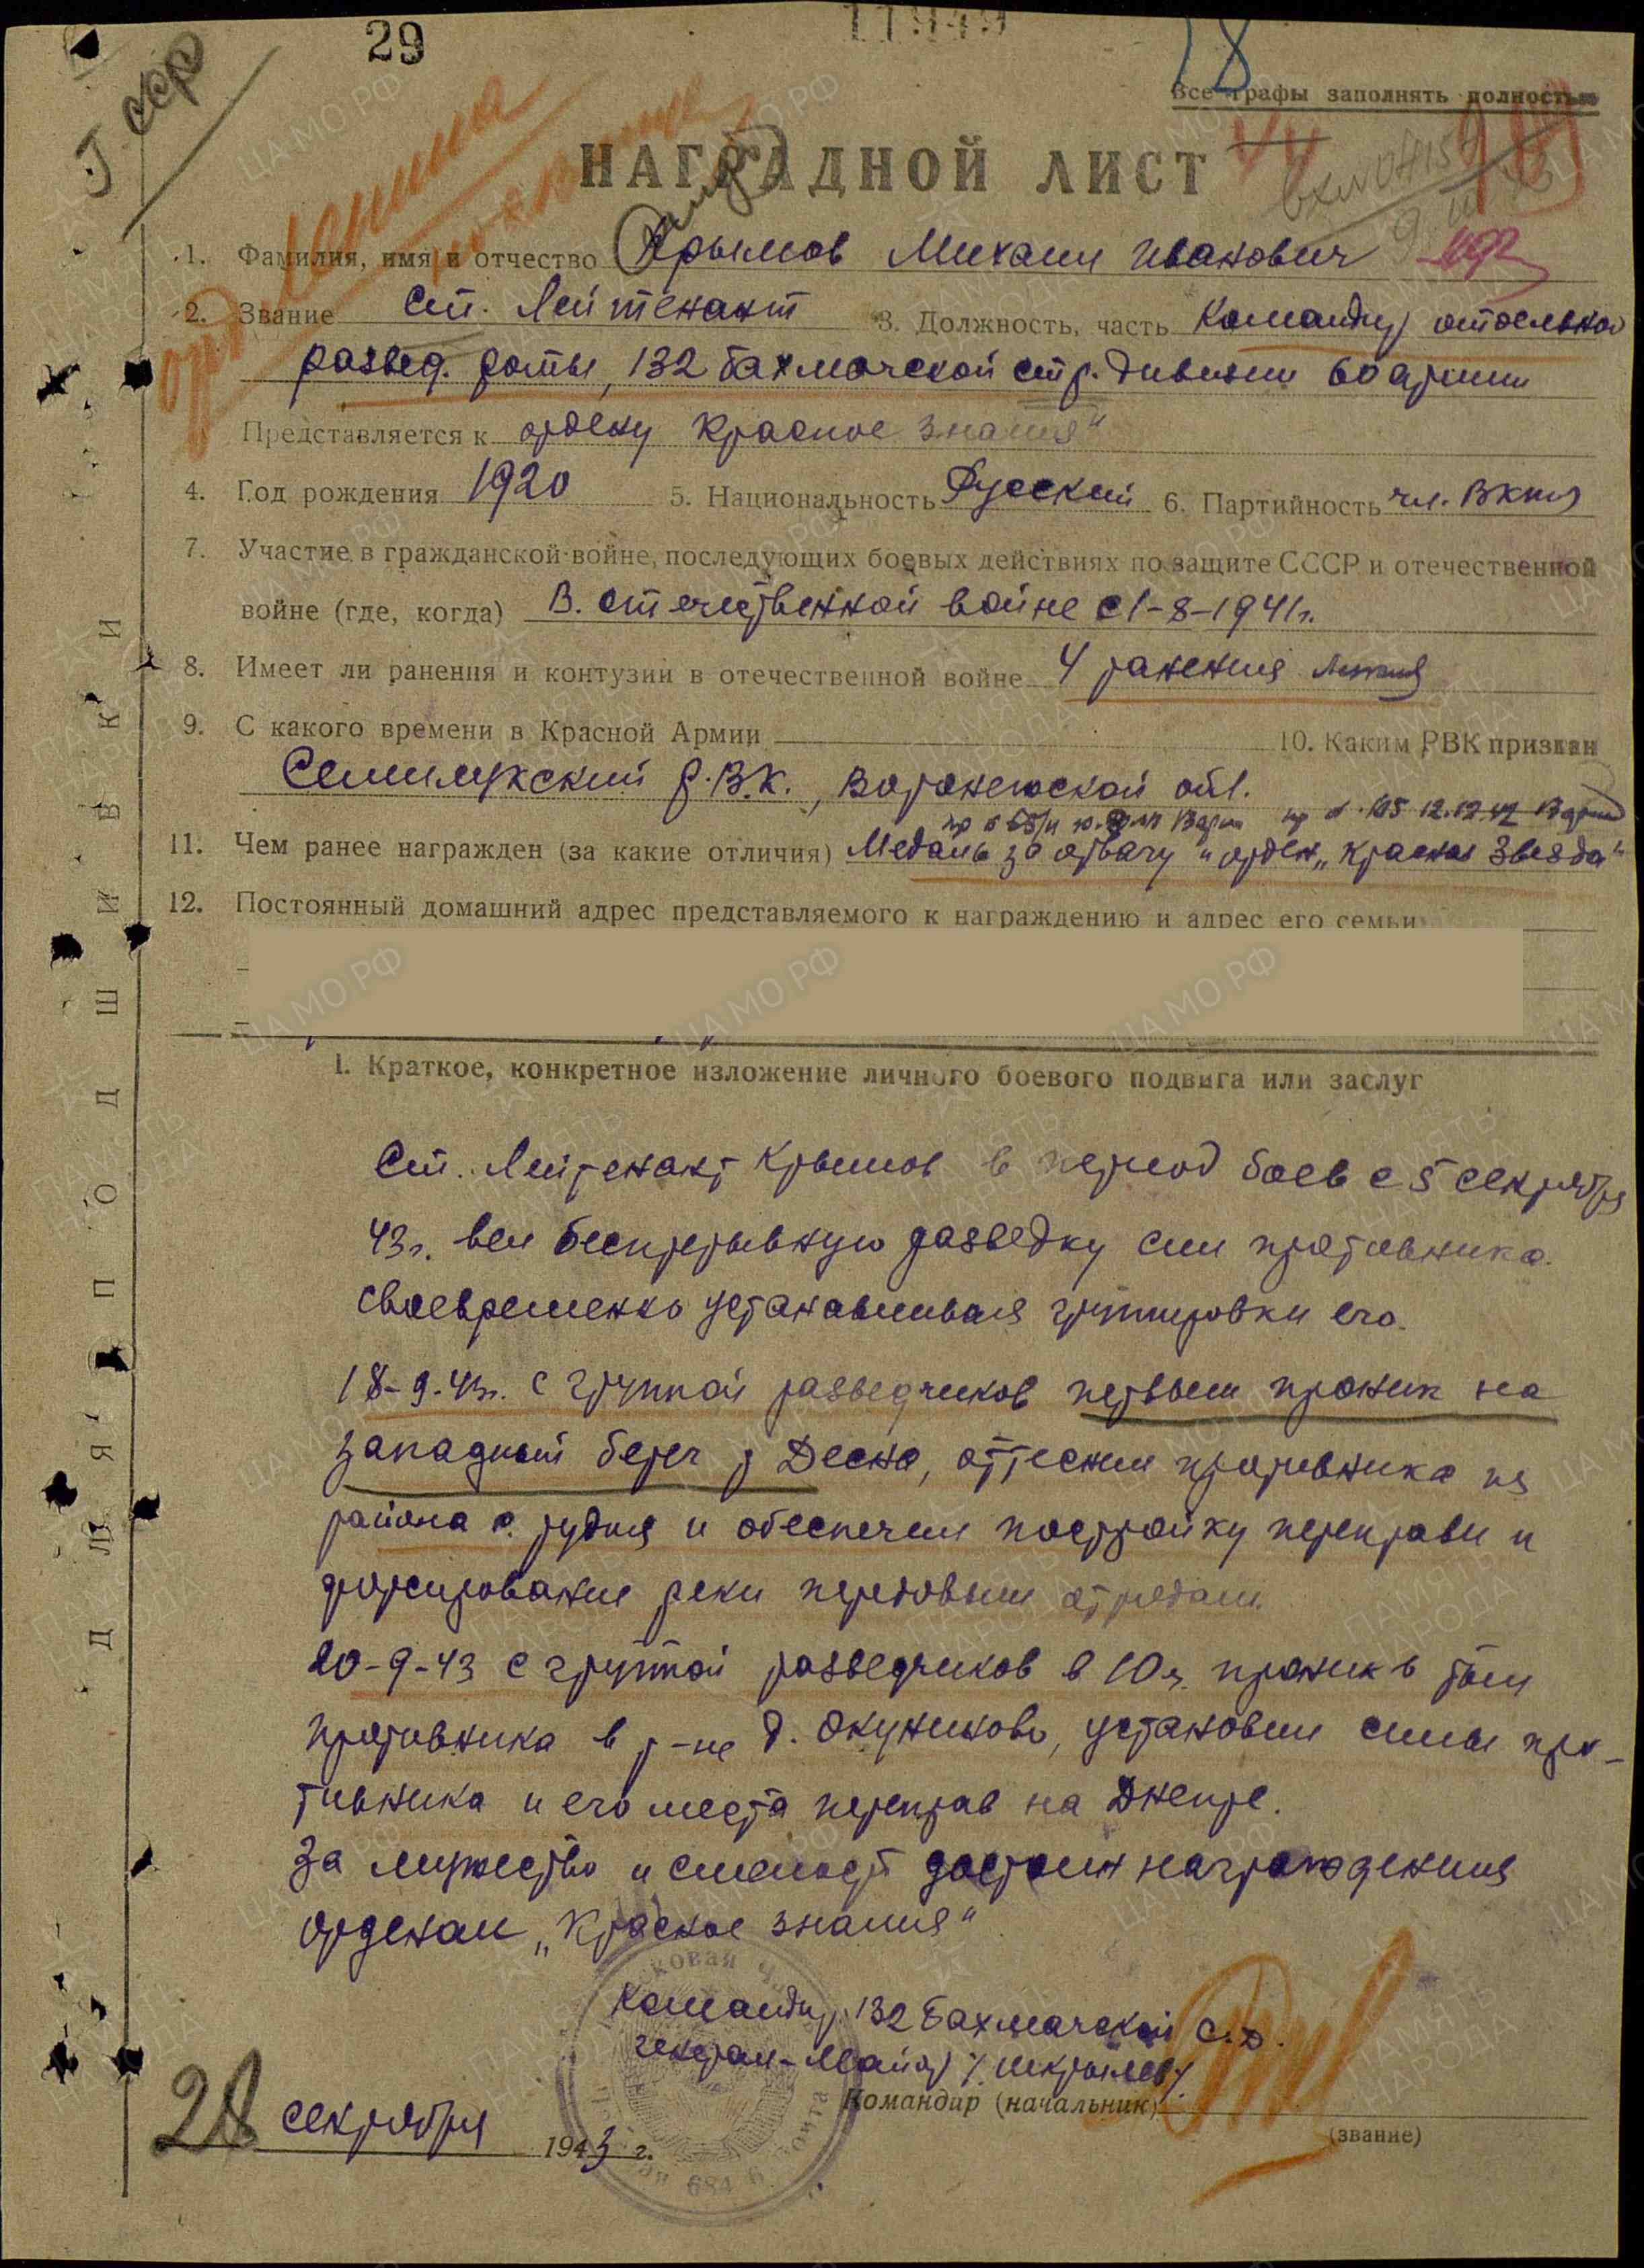 29
11949
18
Г ССР
Все графы заполнять полностью
НАГРАДНОЙ ЛИСТ
1. Фамилия, имя и отчество Крымов Михаил Иванович
2. Звание Ст. Лейтенант 3. Должность, часть Командир отдельной
развед. роты, 132 Бахмачской стр. дивизии 60 армии
Представляется к ордену Красное знамя"
4. Год рождения 1920 5. Национальность Русский 6. Партийность чл. ВКП(б)
7. Участие в гражданской войне, последующих боевых действиях по защите СССР и отечественной
войне (где, когда) В. отечественной войне с 1-8-1941г.
8. Имеет ли ранения и контузии в отечественной войне 4 ранения легких
9. С какого времени в Красной Армии 10. Каким РВК призван
Семилукский Р.В.К., Воронежской обл.
11. Чем ранее награжден (за какие отличия) Медаль за отвагу" орден „Красная Звезда"
12. Постоянный домашний адрес представляемого к награждению и адрес его семьи
I. Краткое, конкретное изложение личного боевого подвига или заслуг
Ст. Лейтенант Крымов в период боев с 5 сентября
43г. вел беспрерывную разведку сил противника.
своевременно устанавливая группировки его.
18-9-43г. с группой разведчиков первым проник на
западный берег р Десна, оттеснил противника из
района с. рудня и обеспечил постройку переправы и
форсирование реки передовым отрядам.
20-9-43 с группой разведчиков в 10ч. проник в тыл
противника в р-не д. Окуниново, установил силы про-
тивника и его места переправ на Днепре.
За мужество и смелость достоин награждения
орденом „Красное знамя"
Командир 132 Бахмачской С.Д.
генерал-Майор /Шкрылев/
Командир (начальник)
(звание)
28 сентября 1943 г.
ДЛЯ ПОДШИВКИ